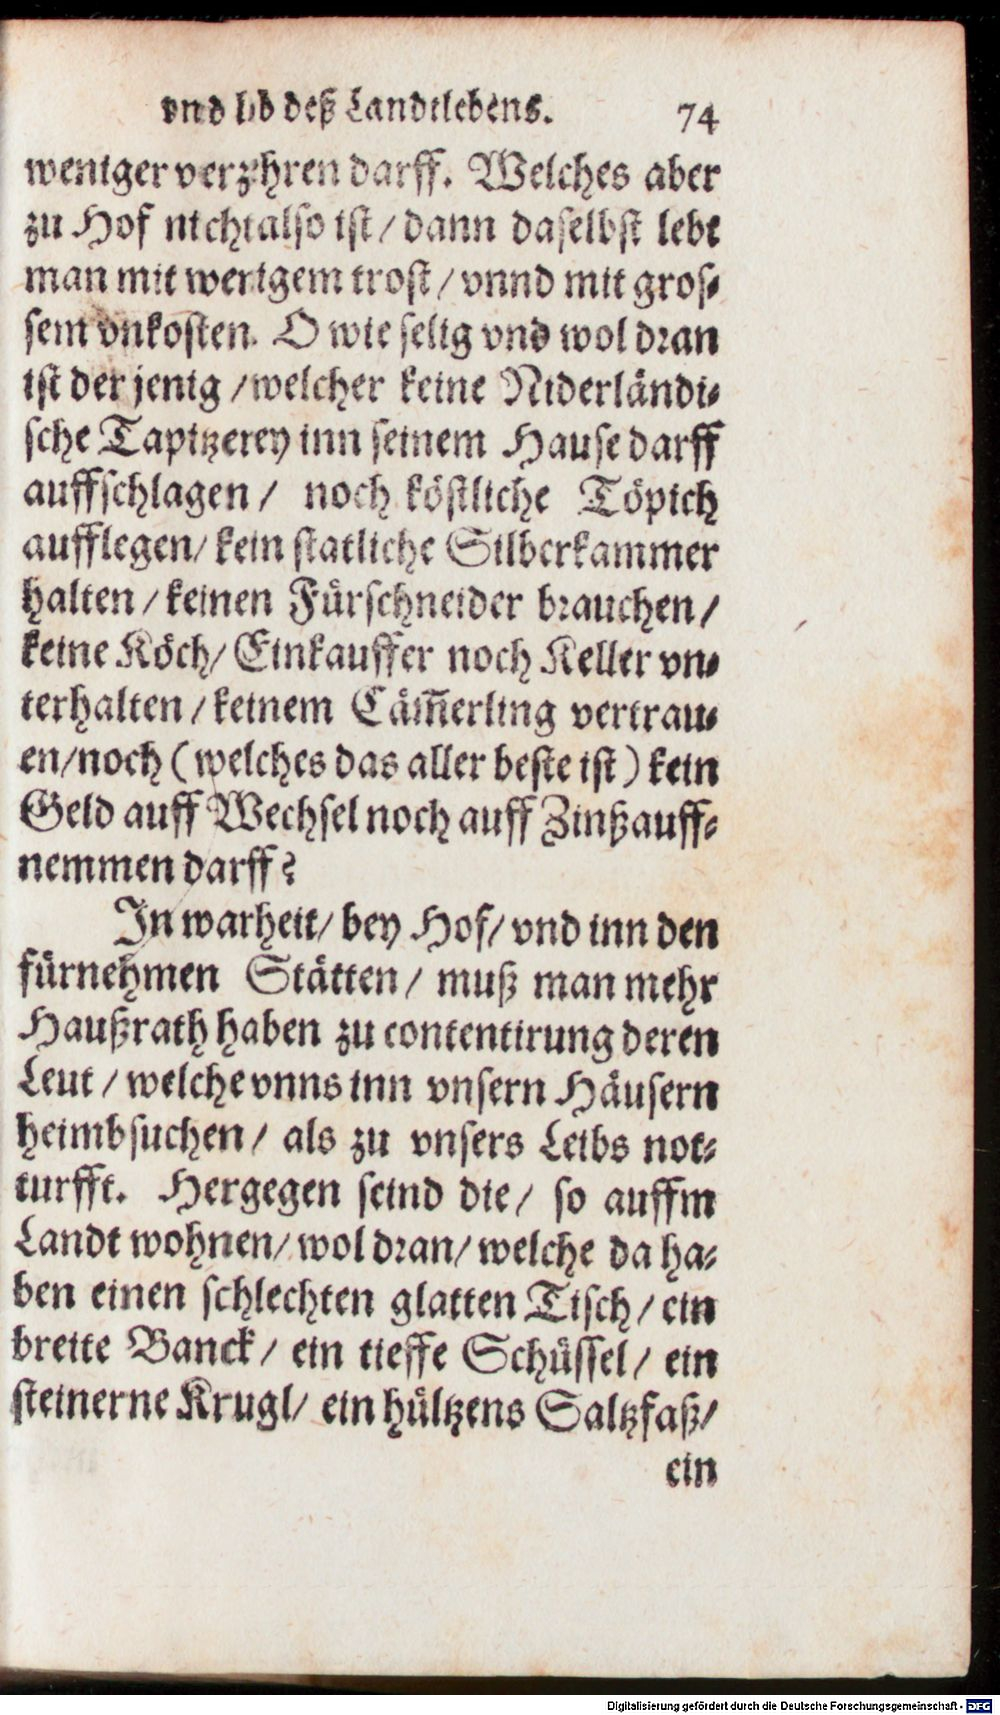 vnd lob deß Landtlebens. 74
weniger verzehren darff. Welches aber
zu Hof nicht also ist / dann daselbst lebt
man mit wenigem trost / vnnd mit gros-
sem vnkosten. O wie selig vnd wol dran
ist der jenig / welcher keine Niderländi-
sche Tapitzerey inn seinem Hause darff
auffschlagen / noch köstliche Töpich
aufflegen / kein statliche Silberkammer
halten / keinen Fürschneider brauchen /
keine Köch / Einkauffer noch Keller vn-
terhalten / keinem Cäm̃erling vertrau-
en / noch ( welches das aller beste ist ) kein
Geld auff Wechsel noch auff Zinß auff-
nemmen darff?
In warheit / bey Hof / vnd inn den
fürnehmen Stätten / muß man mehr
Haußrath haben zu contentirung deren
Leut / welche vnns inn vnsern Häusern
heimbsuchen / als zu vnsers Leibs not-
turfft. Hergegen seind die / so auffm
Landt wohnen / wol dran / welche da ha-
ben einen schlechten glatten Tisch / ein
breite Banck / ein tieffe Schüssel / ein
steinerne Krugl / ein hültzens Saltzfaß /
ein
Digitalisierung gefördert durch die Deutsche Forschungsgemeinschaft - DFG